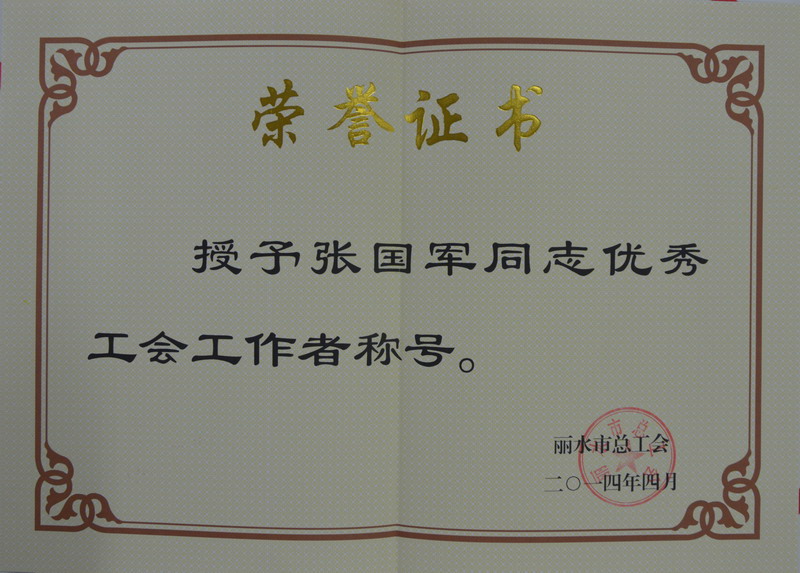 荣誉证书
授予张国军同志优秀
工会工作者称号。
丽水市总工会
二〇一四年四月